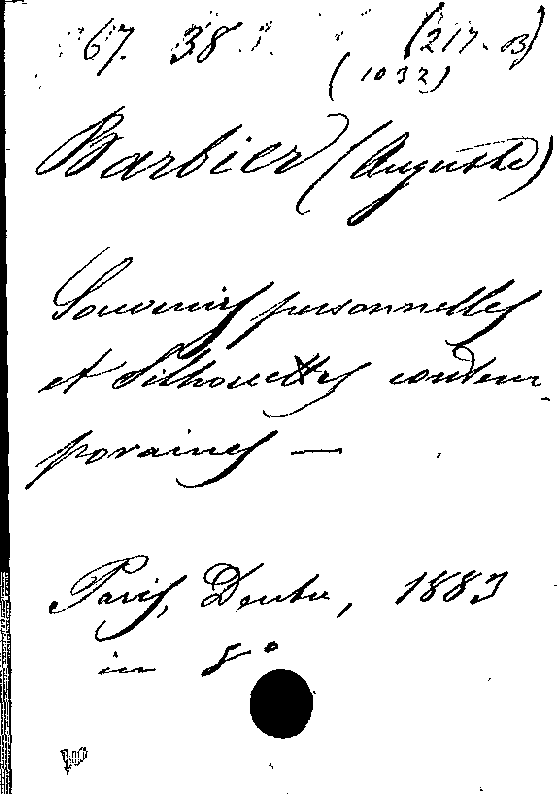 67. 38
(217. B)
(1032)
Barbier (Auguste)
Souvenirs personnelles
et Silhouettes contem-
poraines —
Paris, Dentu, 1883
in 8°